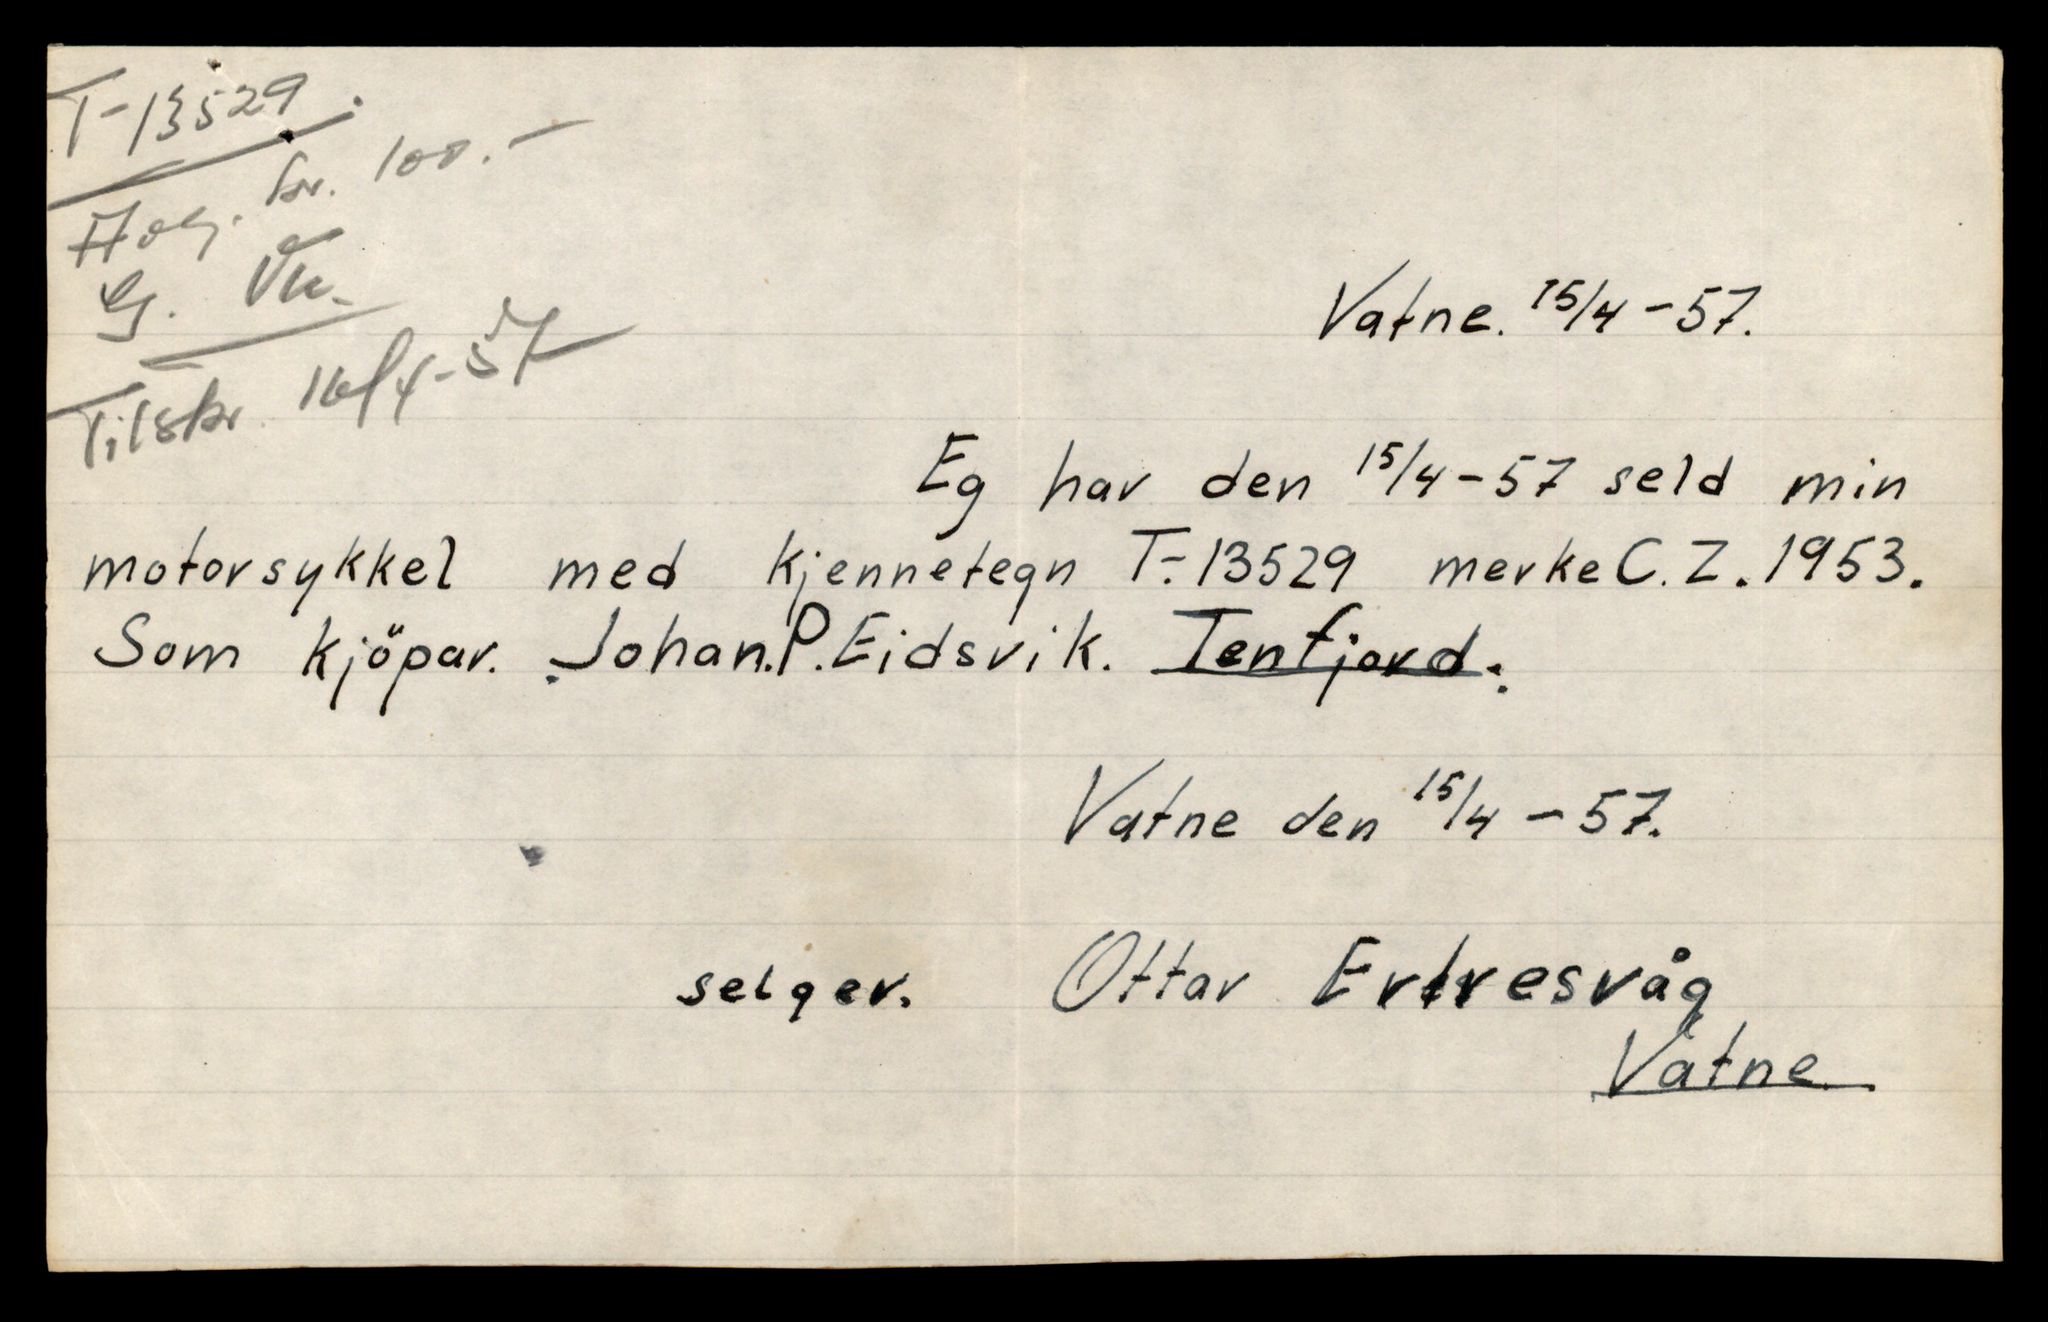 T-13529.
kr. 100.-
Tilskr. 16/4-57
Vatne. 15/4-57.
Eg har den 15/4-57 seld min
motorsykkel med kjennetegn T.-13529 merke C.Z. 1953.
Som kjöpar. Johan.P.Eidsvik. Tenfjord.
Vatne den 15/4-57.
selger. Ottar Ertresvåg
Vatne